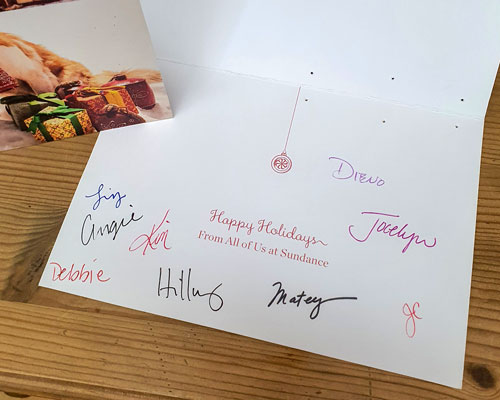 Drevo
Liz
Angie
Kim
Happy Holidays
From All of Us at Sundance
Jocelyn
Debbie
Hillary
Matey
JC